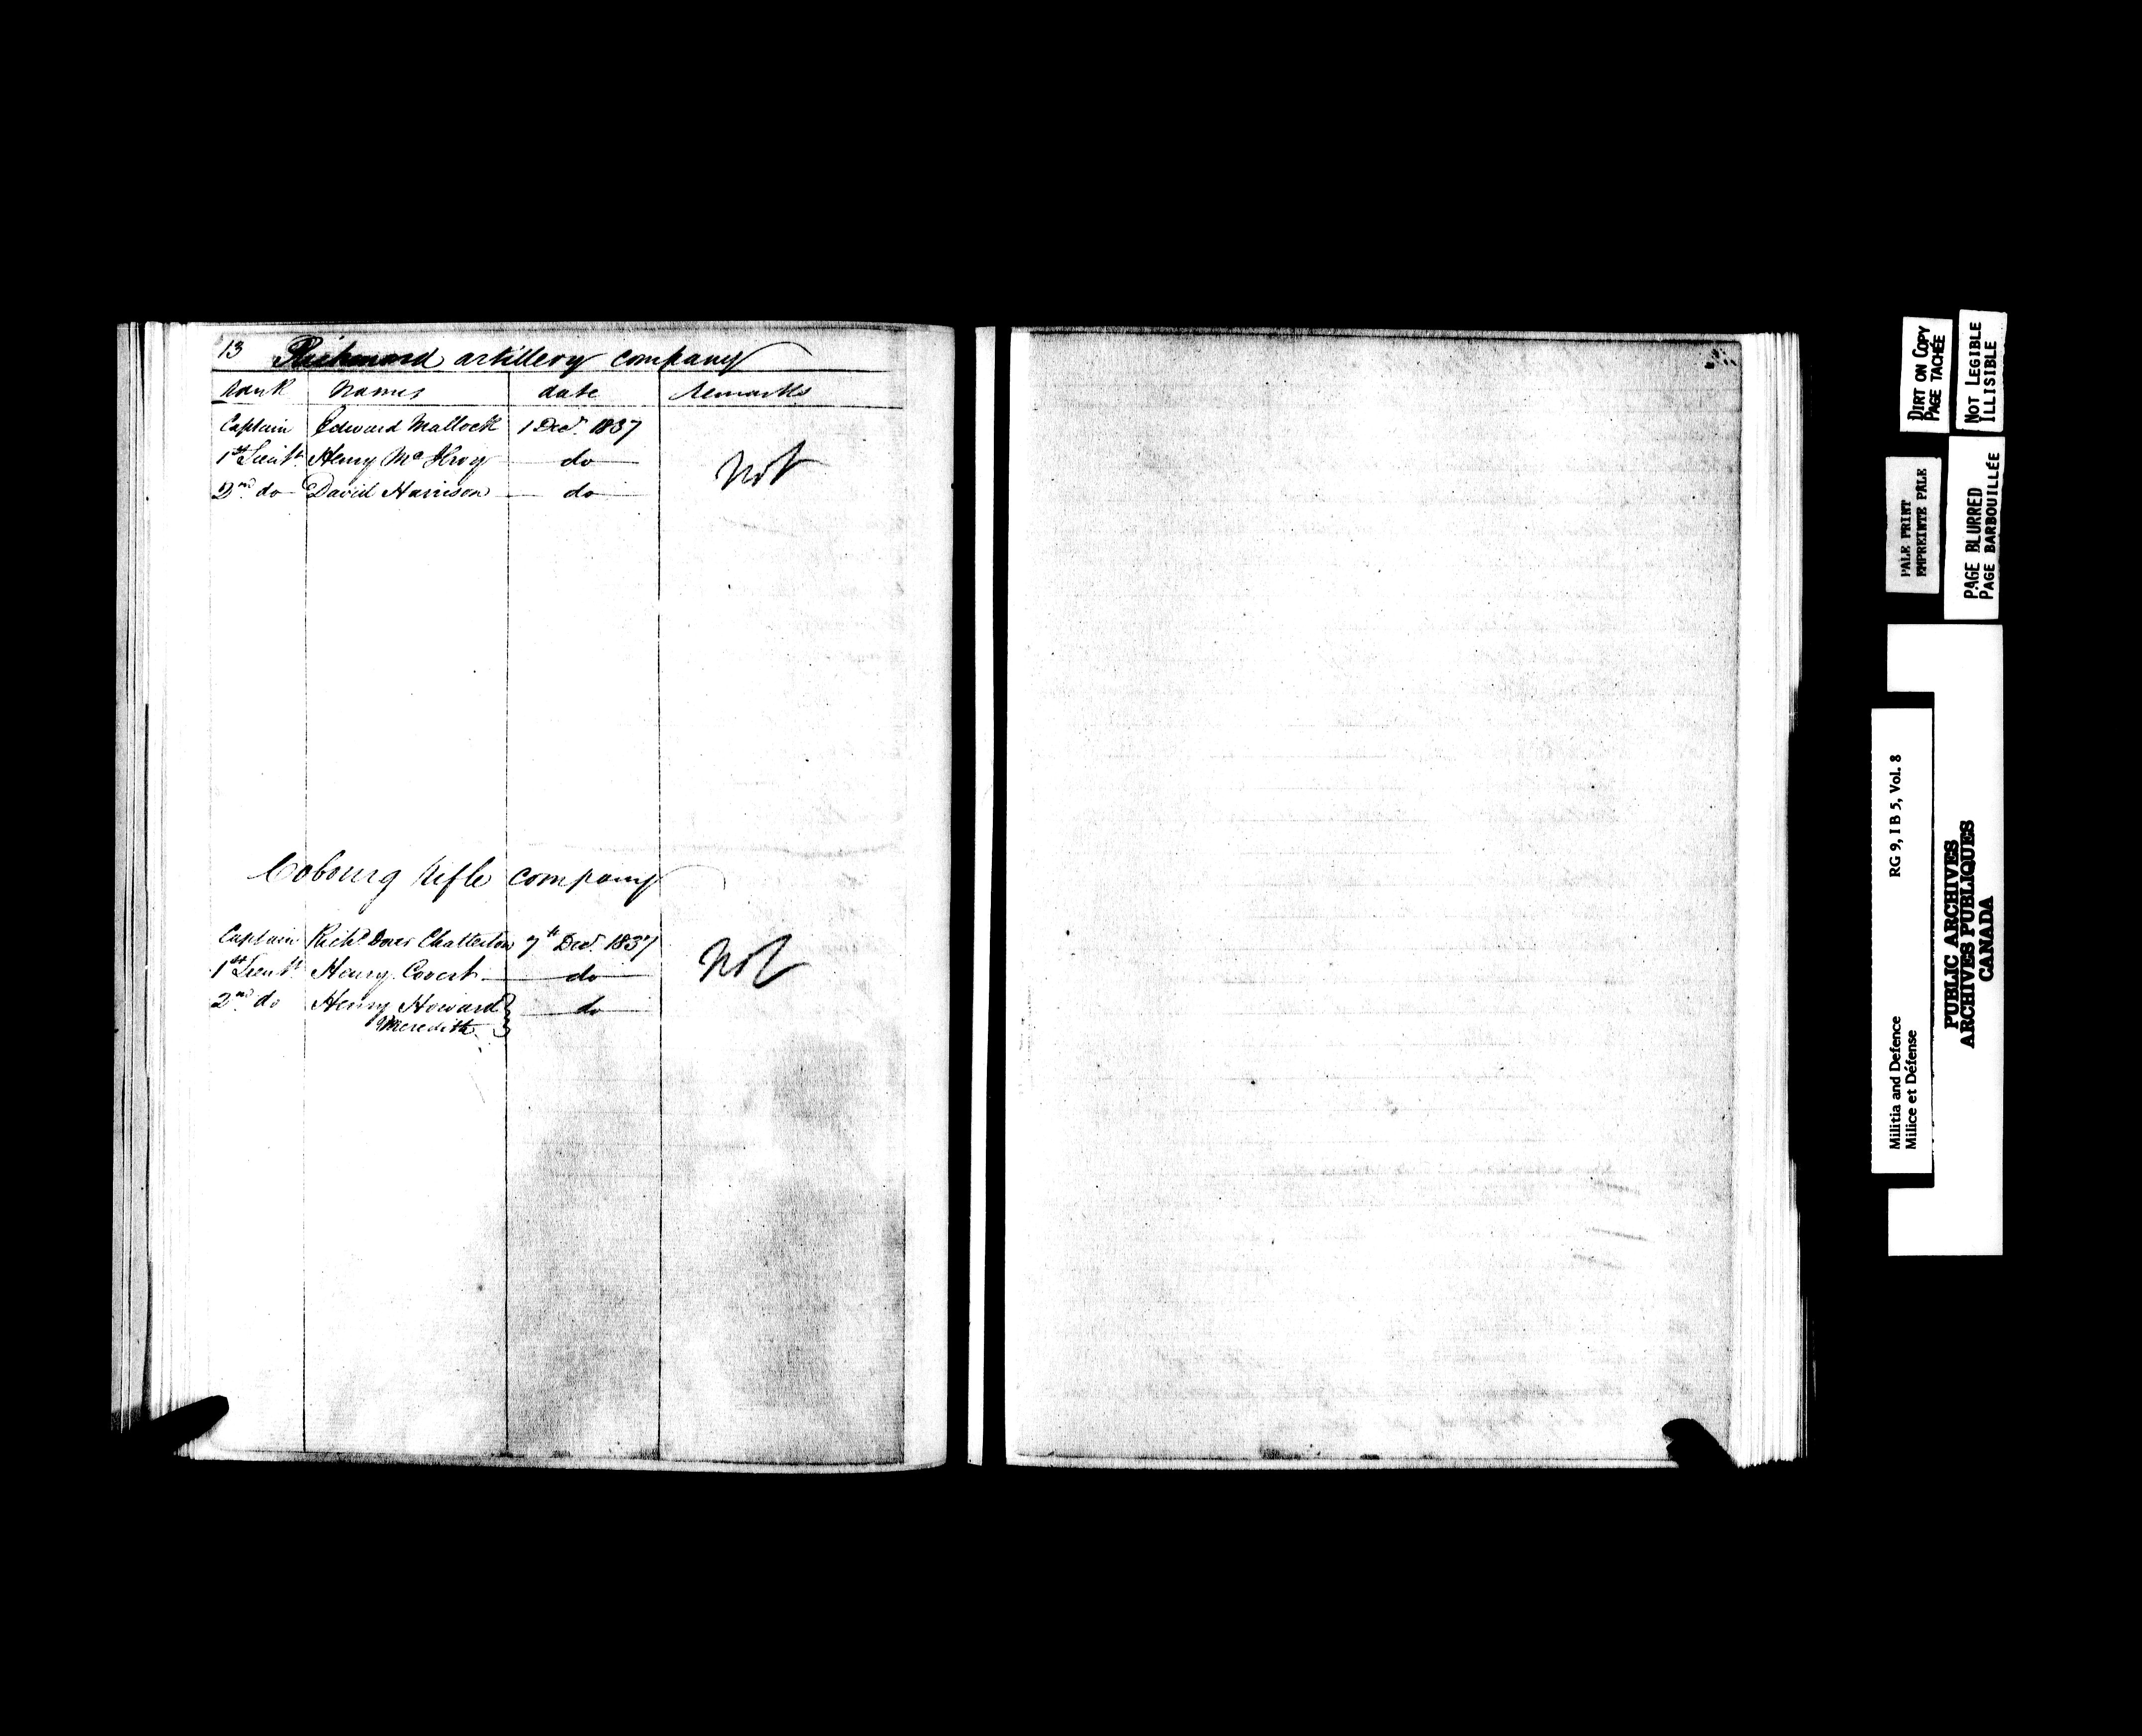 13 Richmond artillery company
Rank Names date Remarks
Captain Edward Mallock 1 Decr. 1837
1st Lieut. Henry Mc Ilroy do
Not
2nd do David Harrison do
Cobourg Rifle company
Captain Richd Dover Chatterton 7th Decr. 1837
Not
1st Lieut. Henry Covert do
2nd do Henry Howard do
Meredith
DIRT ON COPY
PAGE TACHÉE
NOT LEGIBLE
ILLISIBLE
PALE PRINT
EMPREINTE PALE
PAGE BLURRED
PAGE BARBOUILLÉE
Militia and Defence RG 9, I B 5, Vol. 8
Milice et Défense
PUBLIC ARCHIVES
ARCHIVES PUBLIQUES
CANADA